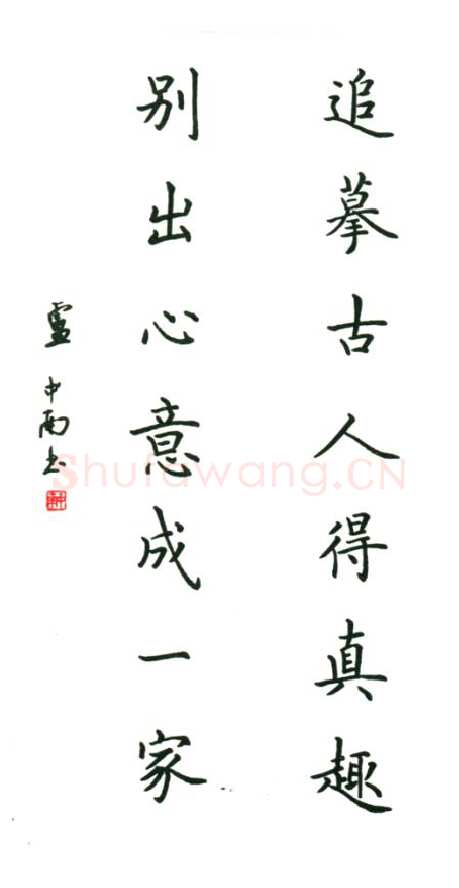 追摹古人得真趣
别出心意成一家
盧中南书
Shufawang.CN